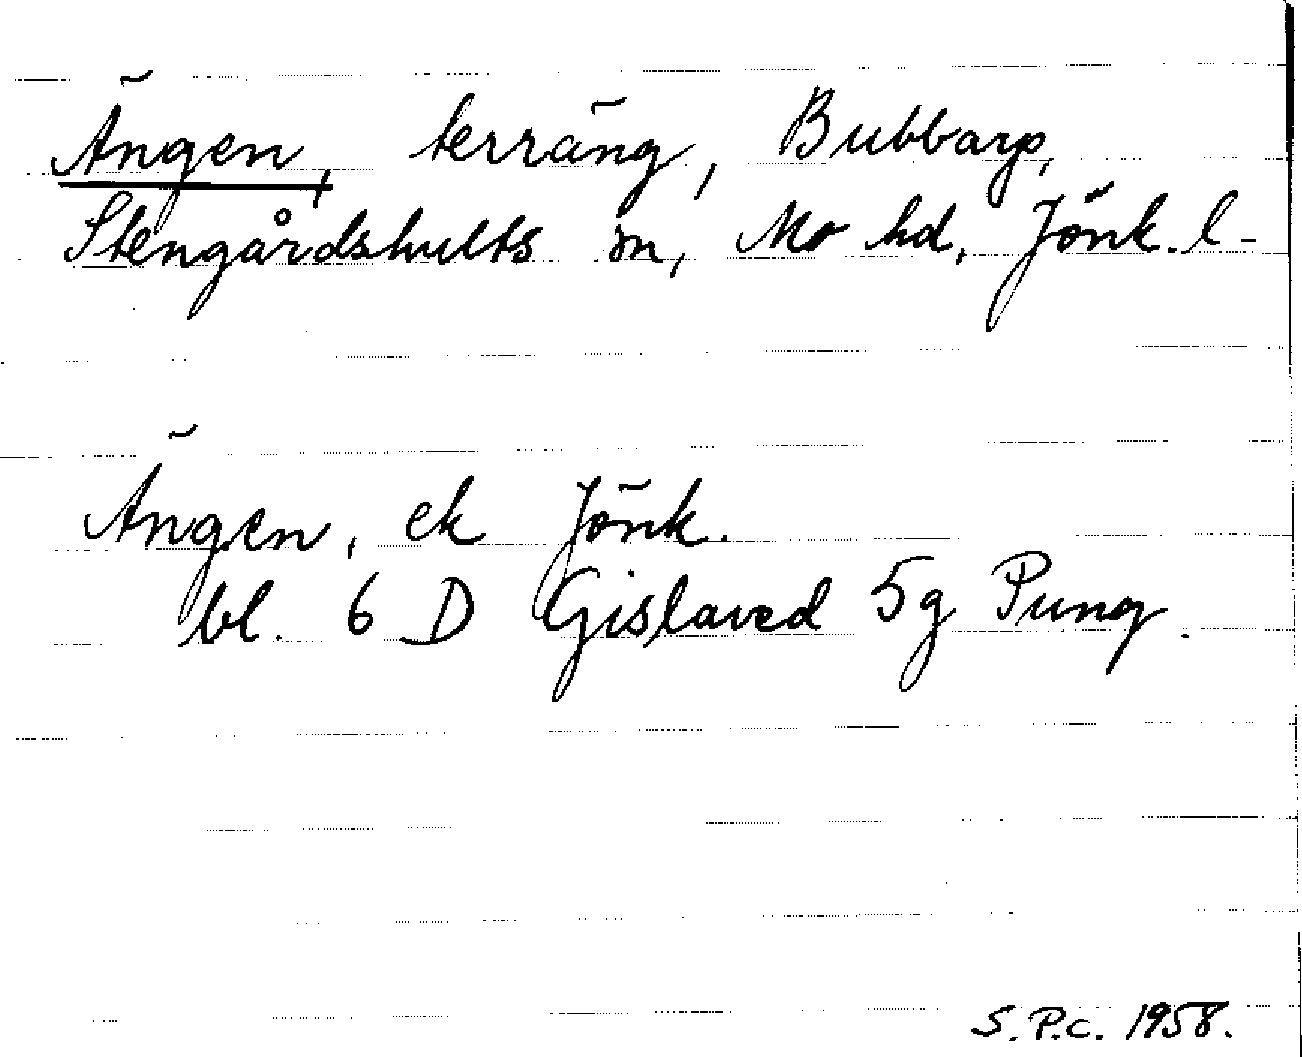 Ängen, terräng, Bubbarp,
Stengårdshults sn, Mo hd, Jönk. l.
Ängen, ek Jönk.
bl. 6 D Gislaved 5g Pung.
S.P.C. 1958.